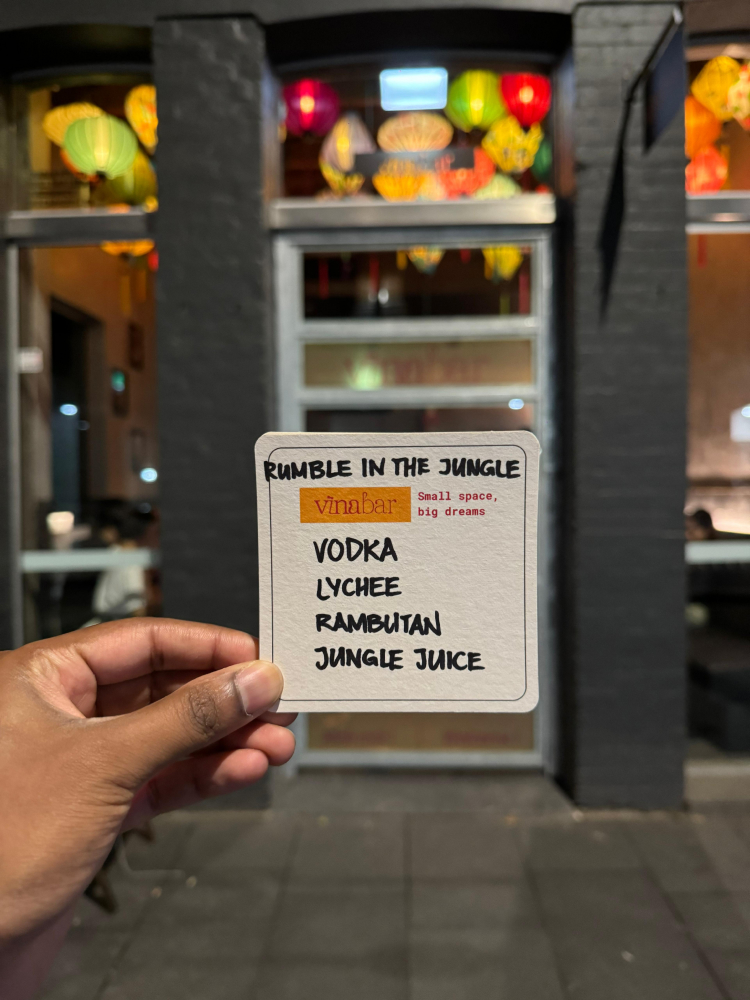 RUMBLE IN THE JUNGLE
vinabar
Small space,
big dreams
VODKA
LYCHEE
RAMBUTAN
JUNGLE JUICE